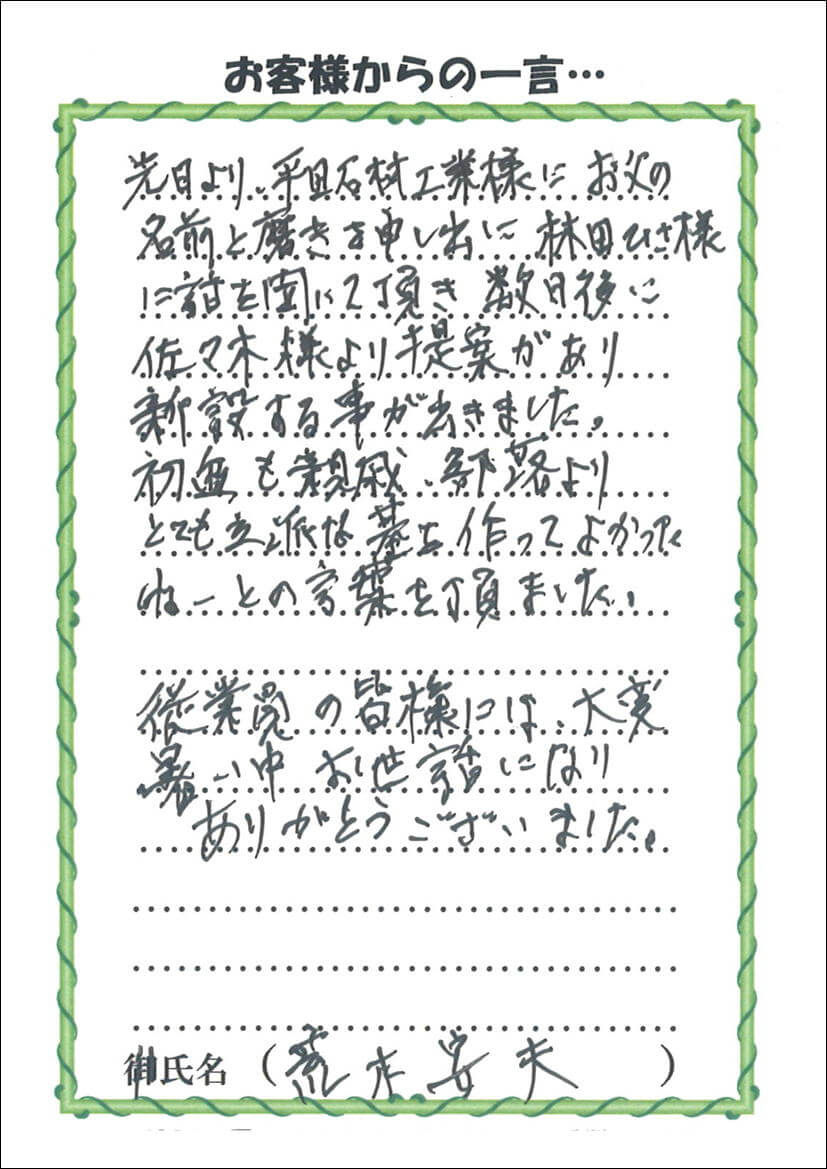 お客様からの一言…
先日より、平田石材工業様に お父の
名前と磨きを申し出に 林田ひさ様
に話を聞いて頂き 数日後に
佐々木様より提案があり
新設する事が出きました。
初盆も親戚、部落より
とても立派な墓を作ってよかった
ねーとの言葉を頂ました。
従業員の皆様には、大変
暑い中 お世話になり
ありがとうございました。
御氏名 （荒木安夫 ）